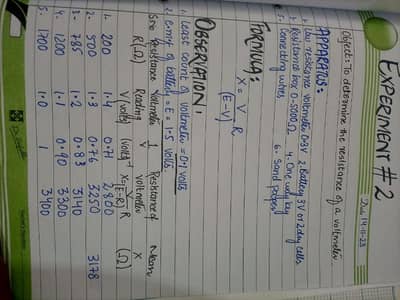 EXPERIMENT # 2
Date 14-11-23
Object: To determine the resistance of a voltmeter
APPARATUS:
1. Low resistance voltmeter 0-3V 2. Battery 3V or 2 dry cells
3. Resistance box 0-5000Ω 4. One way key
5. Connecting wires 6. Sand paper
FORMULA:
X = V R
(E-V)
OBSERVATION:
1. Least count of voltmeter = 0.1 volts
2. e.m.f of battery = E = 1.5 volts
S.no Resistance Voltmeter V Resistance of Mean
R(Ω) Reading volts⁻¹ voltmeter X
V (volts) X = V R (Ω)
(E-R)
1. 200 1.4 0.71 2,800
2. 500 1.3 0.76 3250 3178
3. 785 1.2 0.83 3140
4. 1200 1.1 0.90 3300
5. 1700 1.0 1 3400